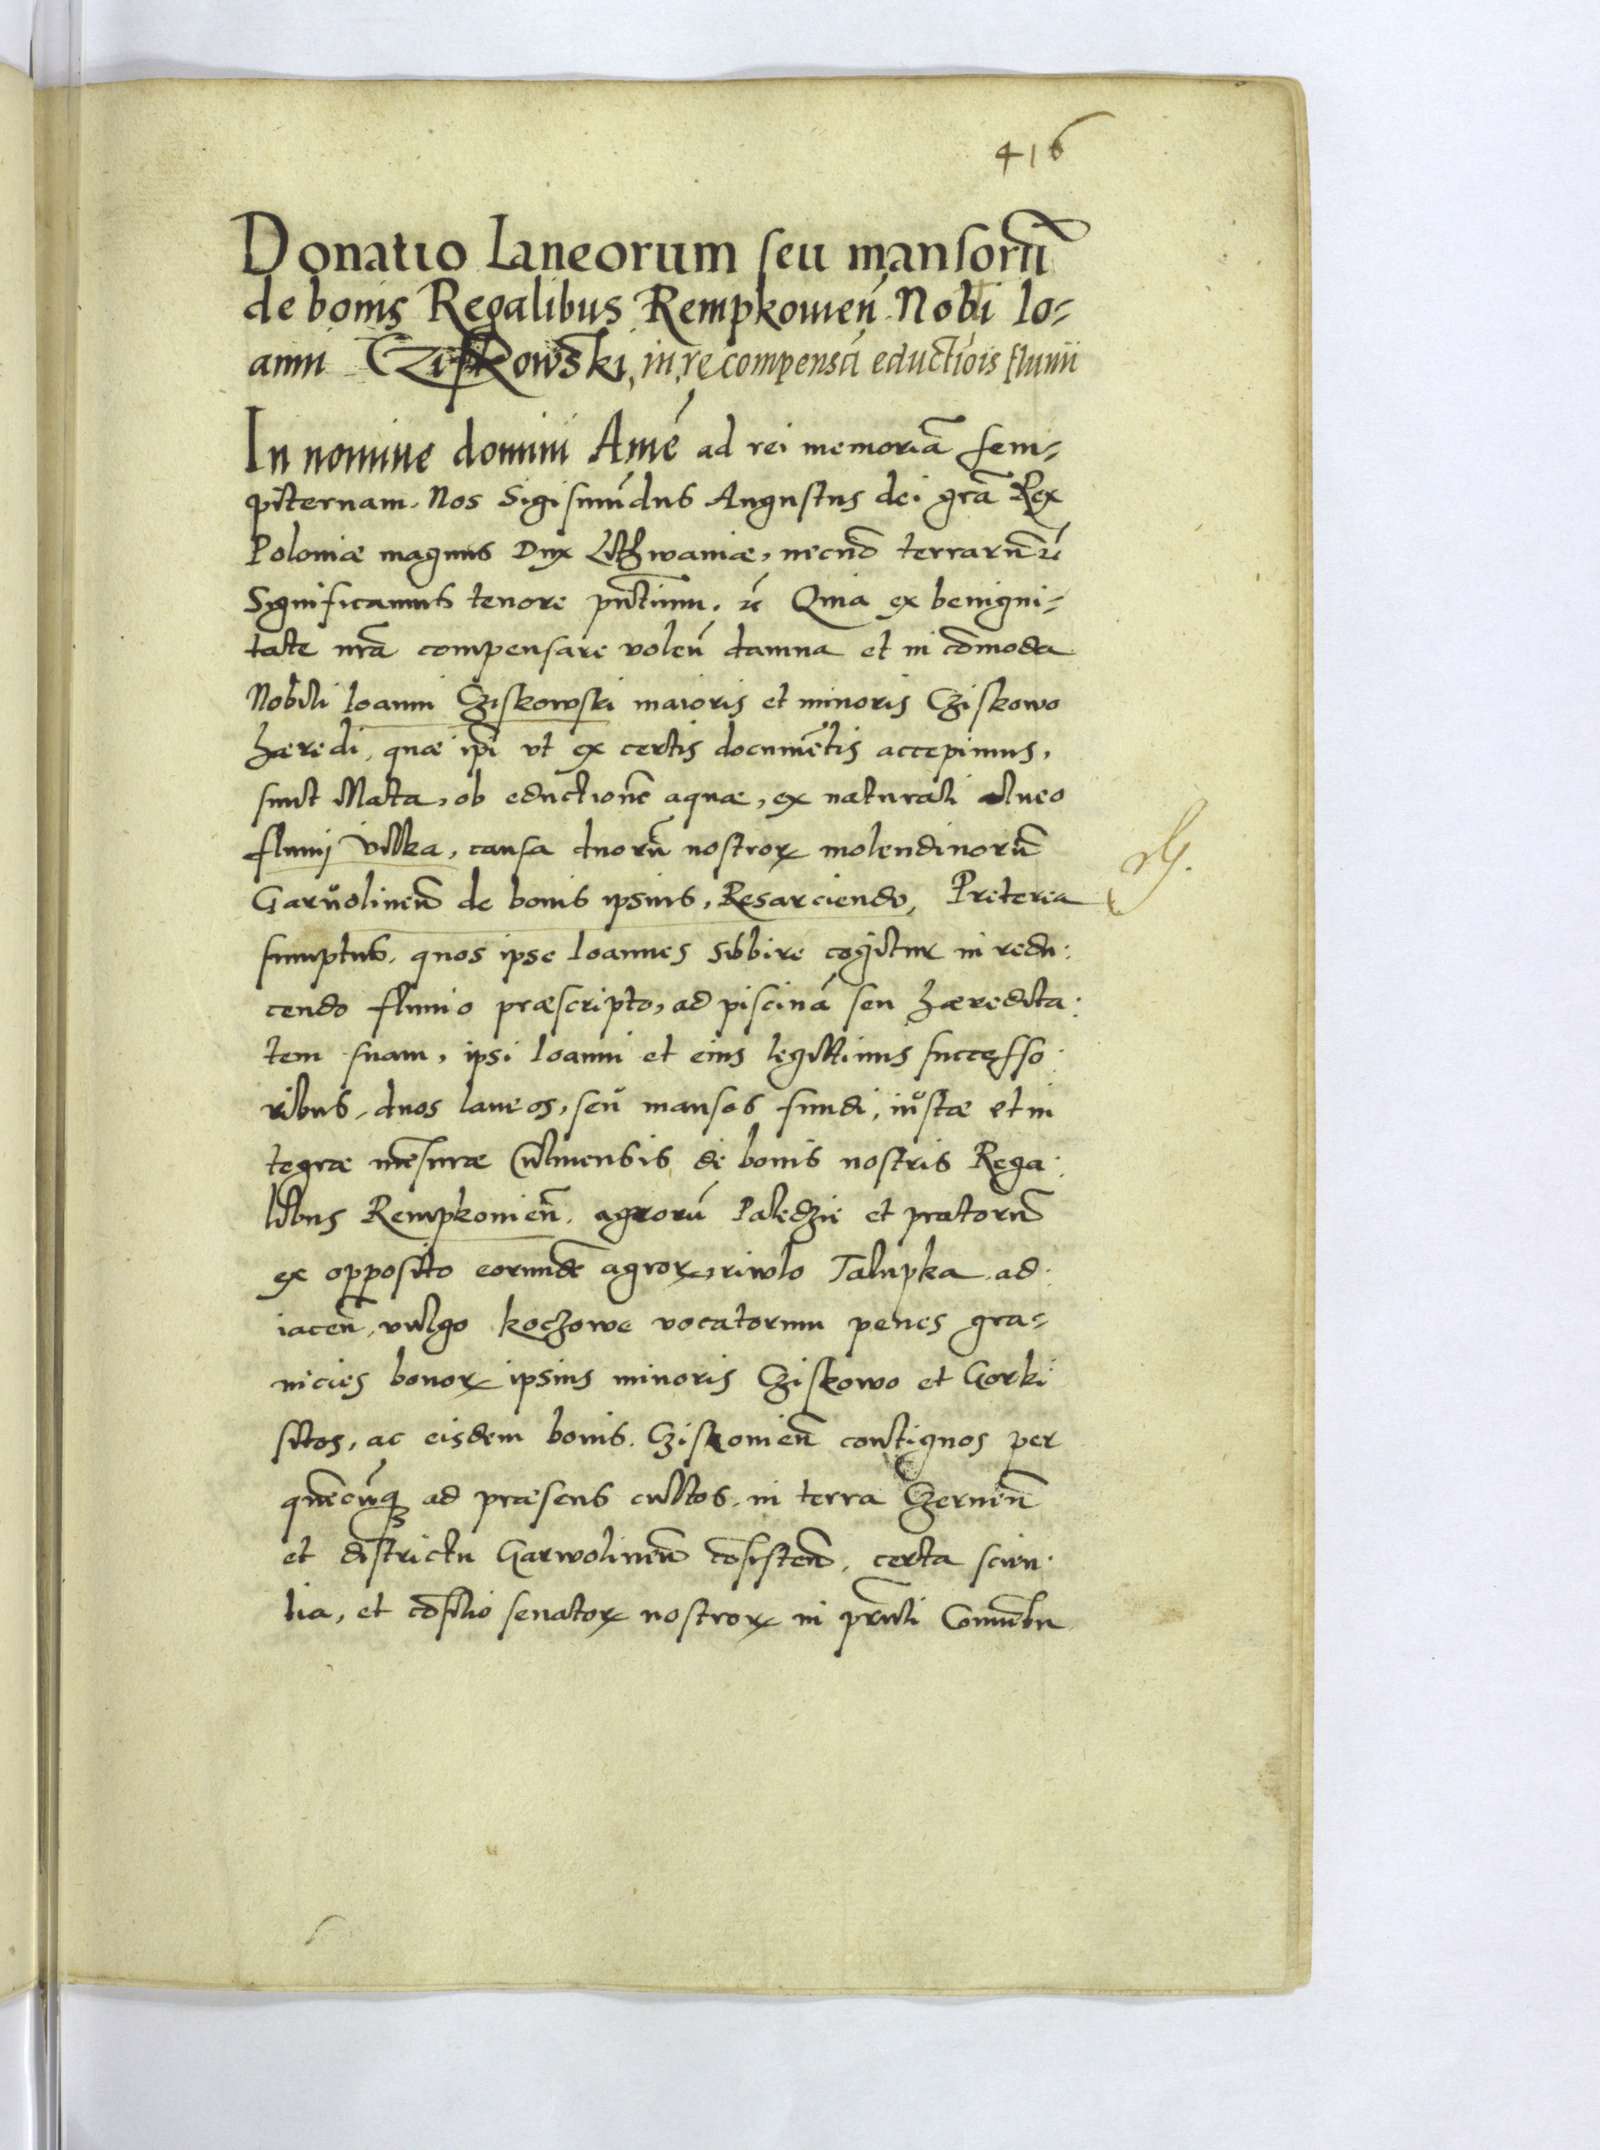 416
Donatio Laneorum seu mansorũ
de bonis Regalibus Rempkowieñ Nobli Io-
anni Cziskowski, in recompensã eductiõis fluvii
In nomine domini Amẽ ad rei memoriã sem-
piternam. Nos Sigismũdus Augustus dei grã Rex
Poloniæ magnus Dux Lithwaniæ, necnõ terrarũ &c
Significamus tenore pñtium. &c Quia ex benigni-
tate nrã compensare voleñ damna et in cõmoda
Nobili Ioanni Cziskowski maioris et minoris Cziskowo
hæredi, quæ ipi vt ex certis documẽtis accepimus,
sunt illata, ob eductionẽ aquæ, ex naturali alueo
fluuij Vilka, causa duorũ nostror molendinorũ
Garŭolineñ de bonis ipsius, Resarciendo, Preterea
sumptus, quos ipse Ioannes subire cogitur in redu:
cendo fluuio præscripto, ad piscinã seu hæredita:
tem suam, ipsi Ioanni et eius legittimis successo:
ribus, duos laneos, seŭ mansos fundi, iŭstæ et in
tegræ mẽsuræ Culmensis de bonis nostris Rega:
libus Rempkouieñ. agrorũ Paledzie et pratorũ
ex opposito eorundẽ agror, riwlo Talupka ad:
iaceñ, vulgo koczowe vocatorum penes gra-
nicies bonor ipsius minoris Cziskowo et Gorki
sitos, ac eisdem bonis. Cziskouieñ contiguos per
quẽcũq ad præsens cultos, in terra Czerneñ
et districtu Garwolineñ cõsisteñ, certa scien:
tia, et cõsilio senator nostror in pr̃nti Comitẽtu